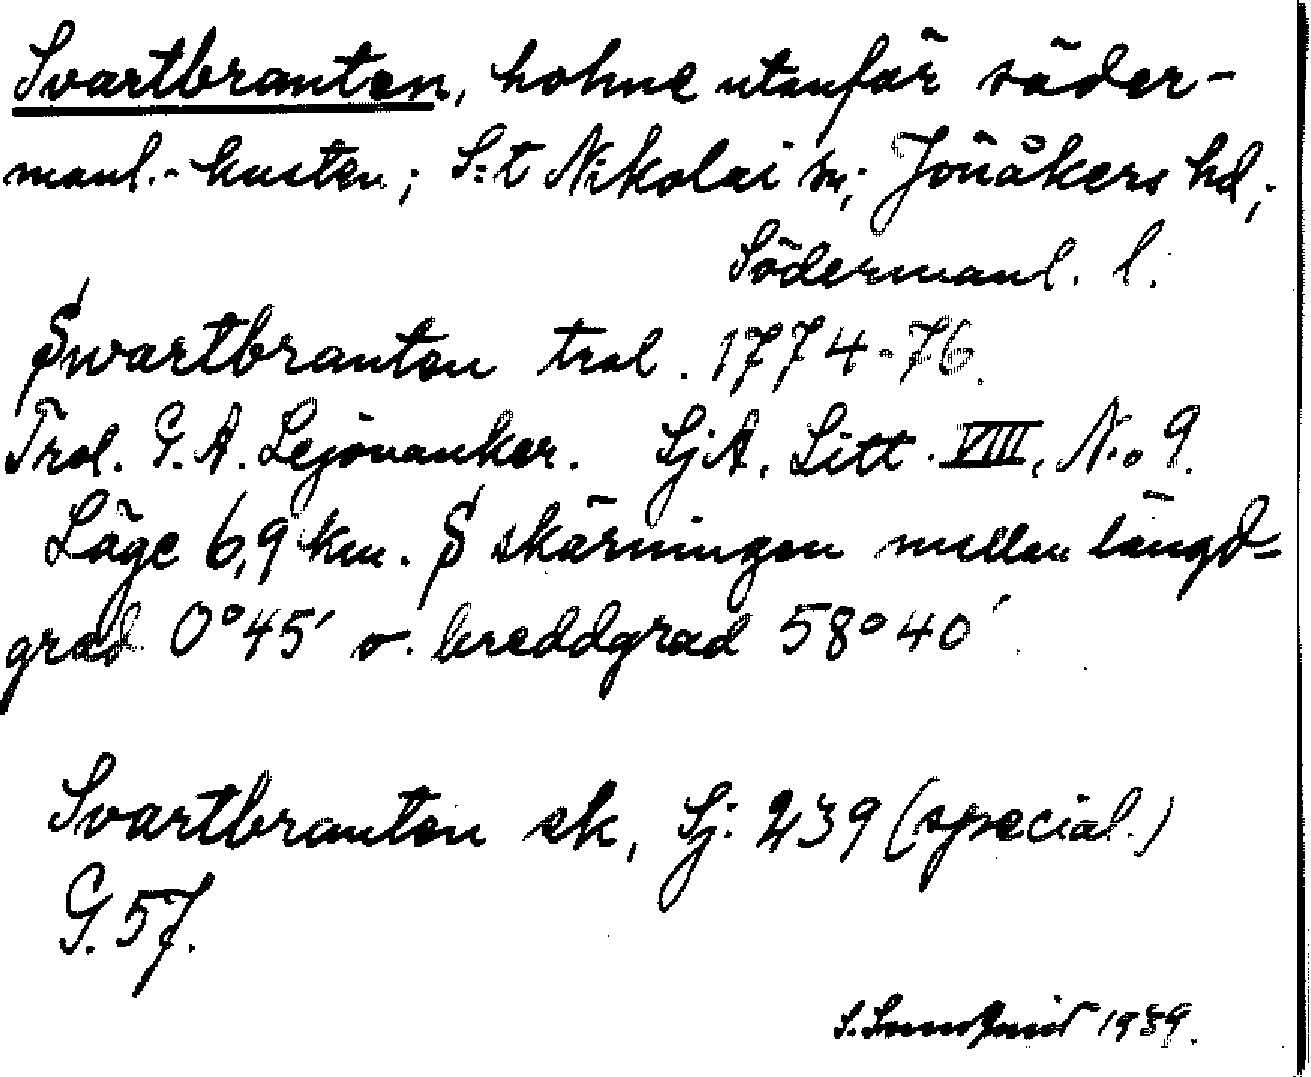 Svartbranten, holme utanför söder-
manl.-kusten; S:t Nikolai sn; Jönåkers hd;
Södermanl. l.
Swartbranten trol. 1774-76.
Trol. G. A. Lejonanker. SjA, Litt. VIII, No 9.
Läge 6,9 km. S skärningen mellan längd-
grad 0°45' o. breddgrad 58°40'
Svartbranten sk, Sj: 239 (special.)
G. 57.
S. 1939.